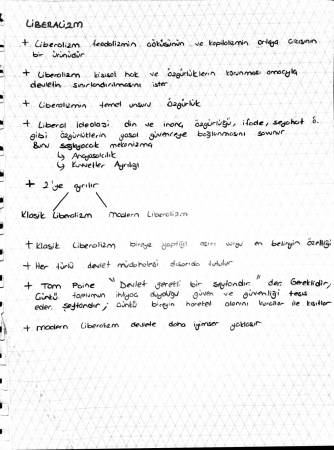 LİBERALİZM
+ Liberalizm feodalizmin çöküşünün ve kapitalizmin ortaya çıkışının
bir ürünüdür
+ Liberalizm kişisel hak ve özgürlüklerin korunması amacıyla
devletin sınırlandırılmasını ister
+ Liberalizmin temel unsuru özgürlük
+ Liberal ideoloji din ve inanç özgürlüğü, ifade, seyahat ö.
gibi özgürlüklerin yasal güvenceye bağlanmasını savunur
Bunu sağlayacak mekanizma
↳ Anayasalcılık
↳ Kuvvetler Ayrılığı
+ 2'ye ayrılır
Klasik Liberalizm modern Liberalizm
+ Klasik Liberalizm bireye yaptığı aşırı vurgu en belirgin özelliği
+ Her türlü devlet müdahalesi dışarıda tutulur
+ Tom Paine "Devlet gerekli bir şeytandır" der. Gereklidir,
Çünkü toplumun ihtiyaç duyduğu güven ve güvenliği tesis
eder. Şeytandır, çünkü bireyin hareket alanını kurallar ile kısıtlar
+ modern Liberalizm devlete daha iyimser yaklaşır